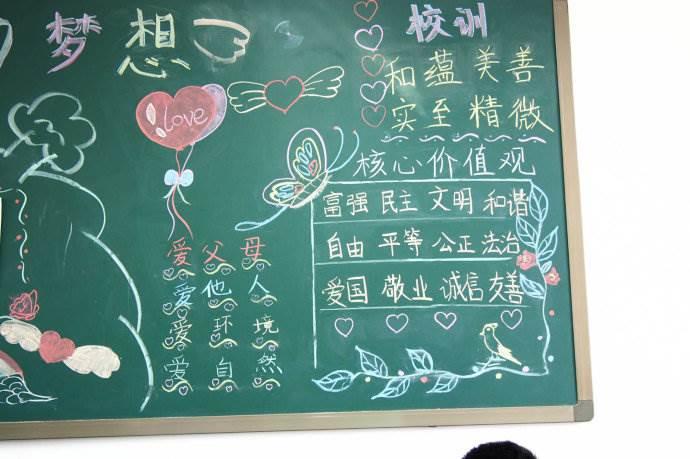 梦想
love
爱父母
爱他人
爱环境
爱自然
校训
和蕴美善
实至精微
核心价值观
富强 民主 文明 和谐
自由 平等 公正 法治
爱国 敬业 诚信 友善